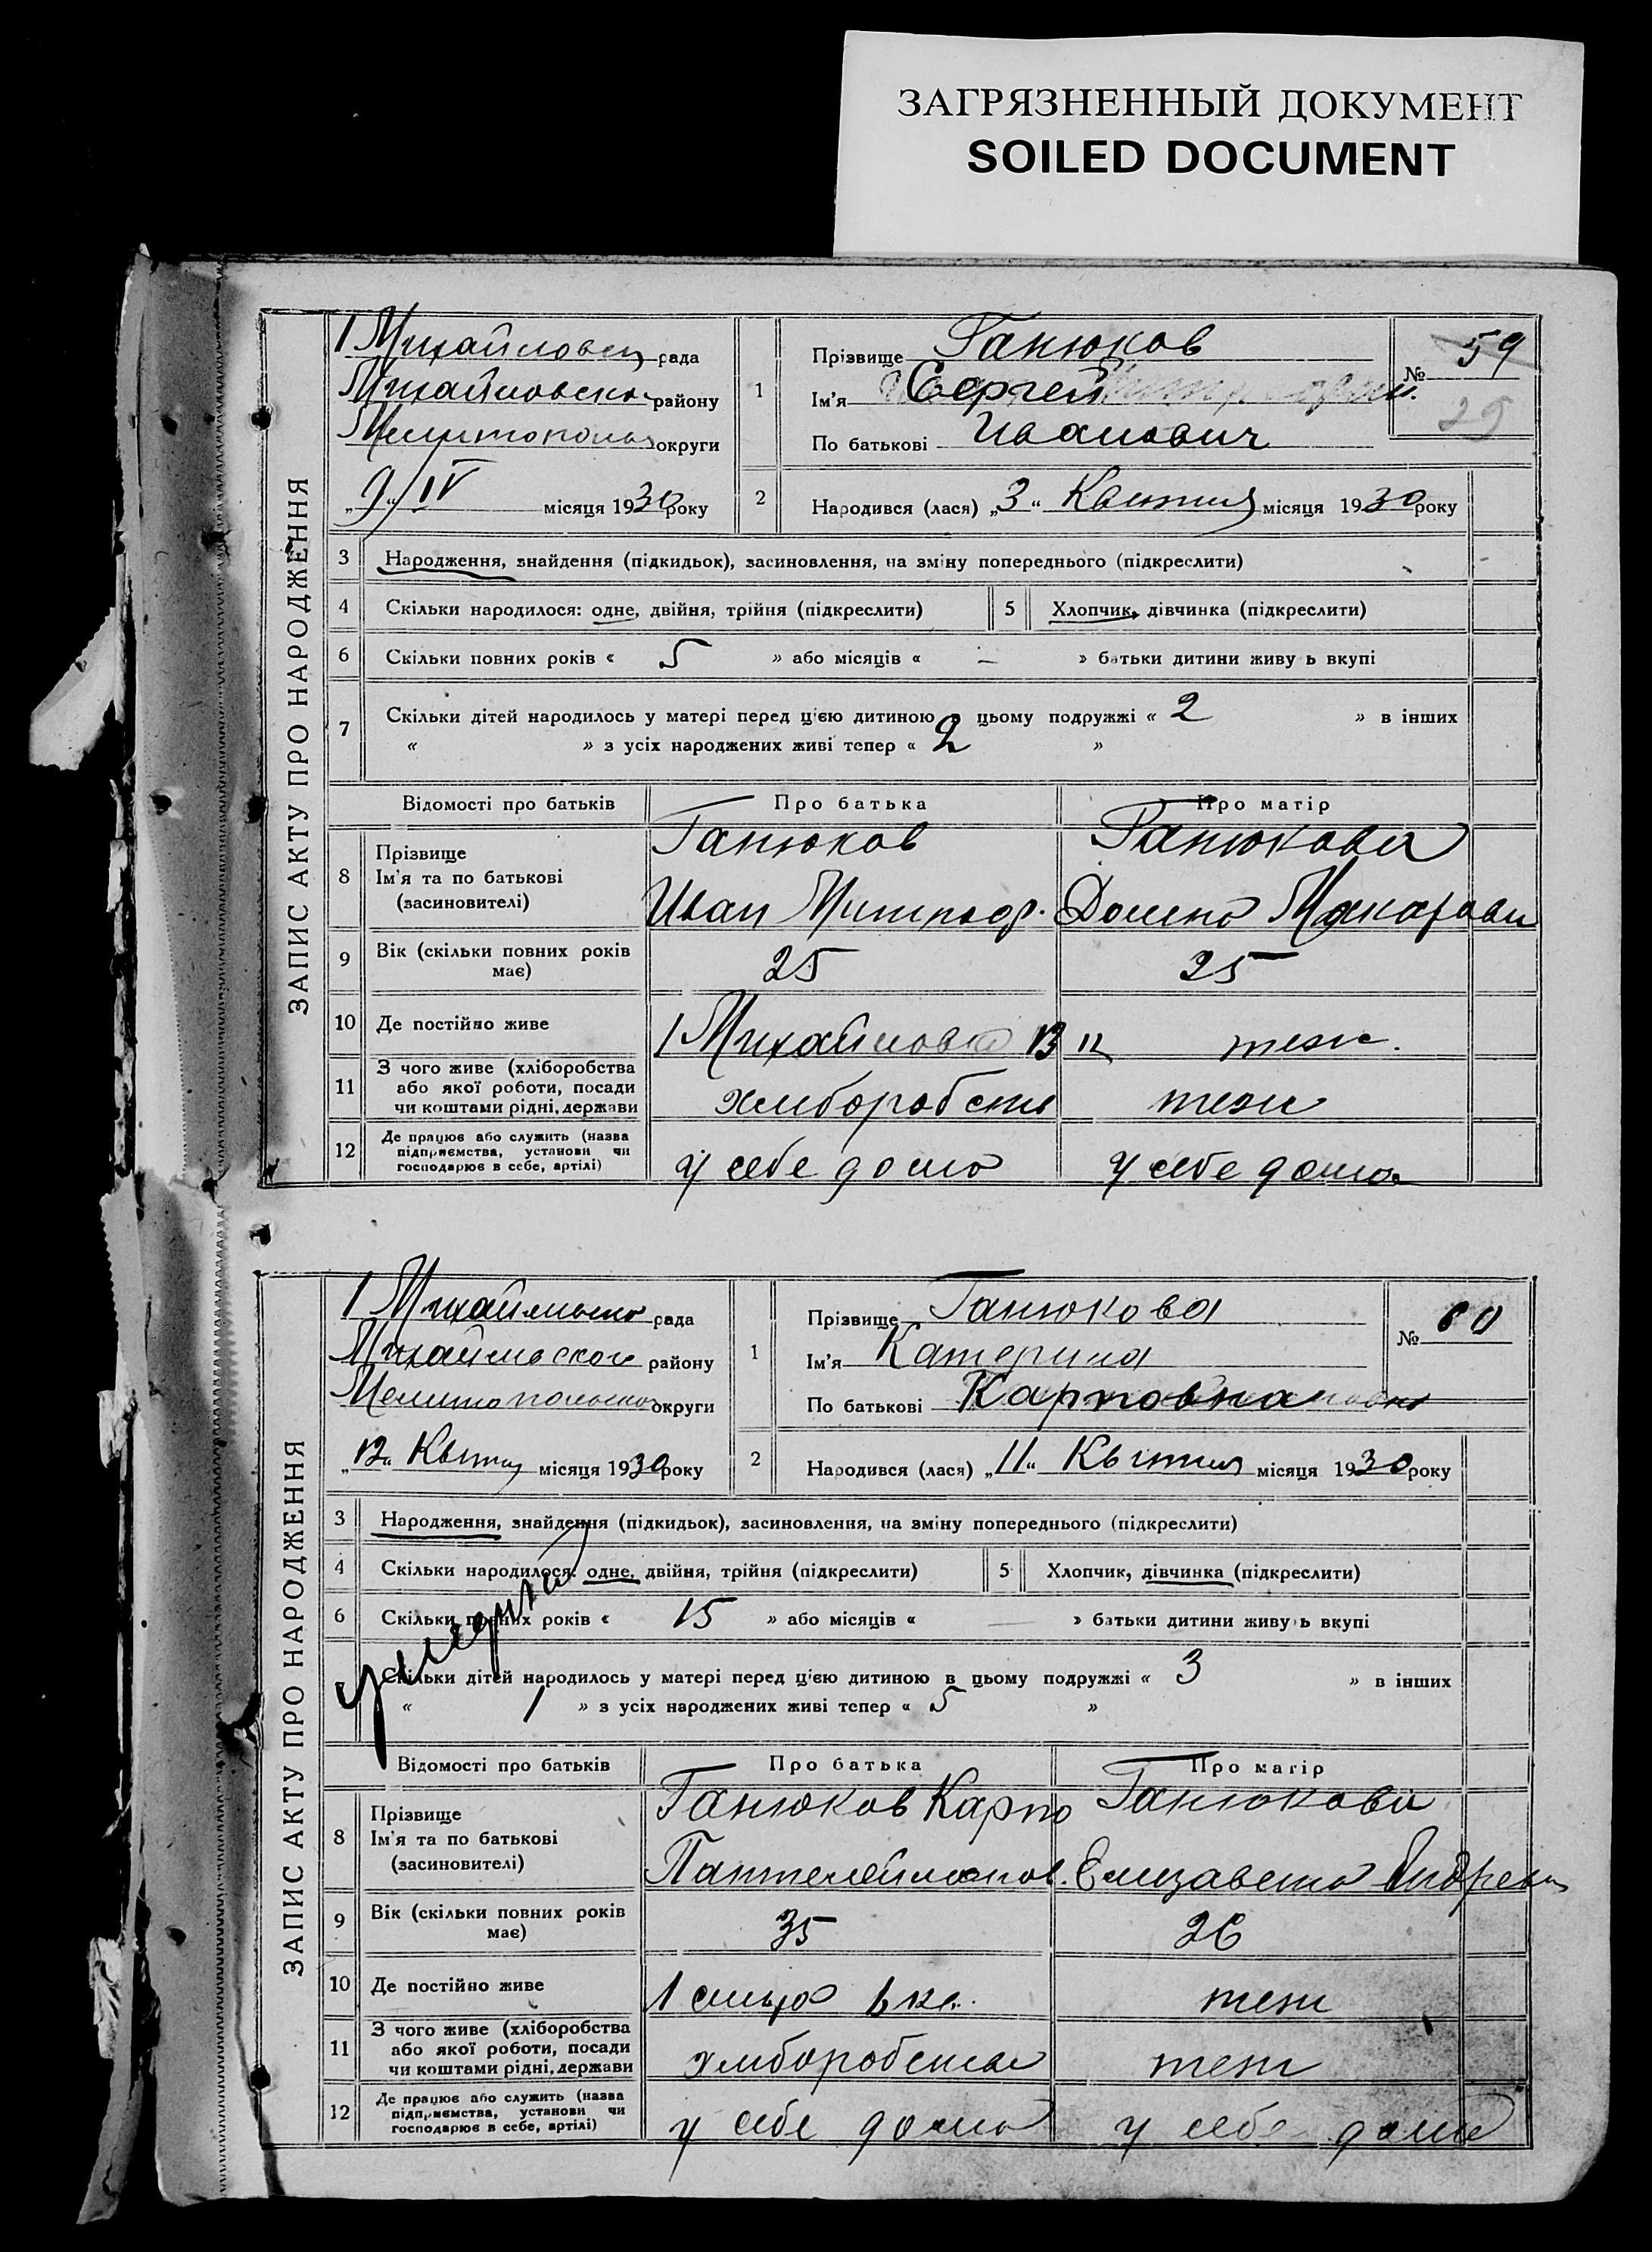 ЗАГРЯЗНЕННЫЙ ДОКУМЕНТ
SOILED DOCUMENT
ЗАПИС АКТУ ПРО НАРОДЖЕННЯ
1 Михайловск рада
Михайловско району
Мелитополь округи
„9“ IV місяця 1930 року
1 Прізвище Ганюков
Ім'я Сергей
По батькові Иванович
№ 59
29
2 Народився (лася) „3“ Квитня місяця 1930 року
3 Народження, знайдення (підкидьок), засиновлення, на зміну попереднього (підкреслити)
4 Скільки народилося: одне, двійня, трійня (підкреслити) 5 Хлопчик, дівчинка (підкреслити)
6 Скільки повних років « 5 » або місяців « — » батьки дитини живу ь вкупі
7 Скільки дітей народилось у матері перед ц'єю дитиною в цьому подружжі « 2 » в інших
« » з усіх народжених живі тепер « 2 »
Відомості про батьків Про батька Про матір
8 Прізвище Ганюков Ганюкова
Ім'я та по батькові
(засиновителі) Иван Митроф. Домна Макарови
9 Вік (скільки повних років має) 25 25
10 Де постійно живе 1 Михайловка теж.
11 З чого живе (хліборобства
або якої роботи, посади
чи коштами рідні, держави хлиборобств теж
12 Де працює або служить (назва
підприємства, установи чи
господарює в себе, артілі) у себе дома у себе дома
ЗАПИС АКТУ ПРО НАРОДЖЕННЯ
1 Михайлисько рада
Михайлвского району
Мелитопольско округи
„12“ Квитня місяця 1930 року
1 Прізвище Ганюкова
Ім'я Катерина
По батькові Карповна
№ 60
2 Народився (лася) „11“ Квітня місяця 1930 року
3 Народження, знайдення (підкидьок), засиновлення, на зміну попереднього (підкреслити)
4 Скільки народилося: одне, двійня, трійня (підкреслити) 5 Хлопчик, дівчинка (підкреслити)
6 Скільки повних років « 15 » або місяців « — » батьки дитини живу ь вкупі
умерла
Скільки дітей народилось у матері перед ц'єю дитиною в цьому подружжі « 3 » в інших
« 1 » з усіх народжених живі тепер « 5 »
Відомості про батьків Про батька Про матір
8 Прізвище Ганюков Карпо Ганюкова
Ім'я та по батькові
(засиновителі) Пантелеймонов. Елизавета Андреевн
9 Вік (скільки повних років має) 35 26
10 Де постійно живе 1 теж
11 З чого живе (хліборобства
або якої роботи, посади
чи коштами рідні, держави хлиборобства теж
12 Де працює або служить (назва
підприємства, установи чи
господарює в себе, артілі) у себе дома у себе дома